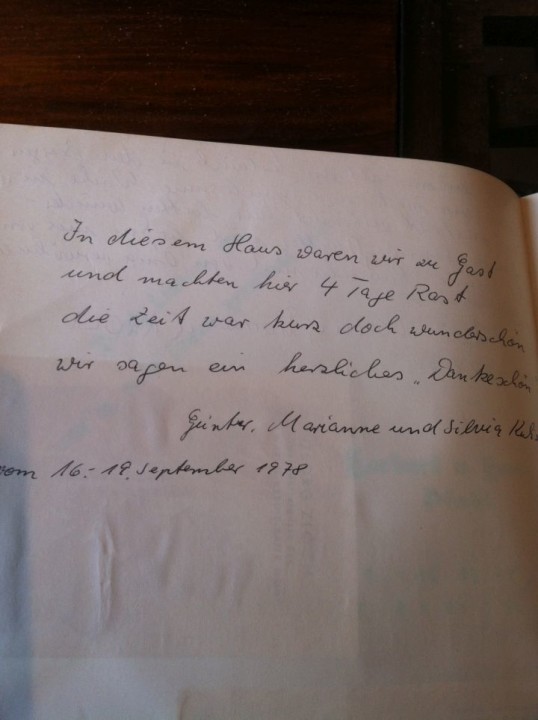 In diesem Haus waren wir zu Gast
und machten hier 4 Tage Rast
die Zeit war kurz doch wunderschön
wir sagen ein herzliches „Dankeschön
Günter, Marianne und Silvia
vom 16.-19. September 1978